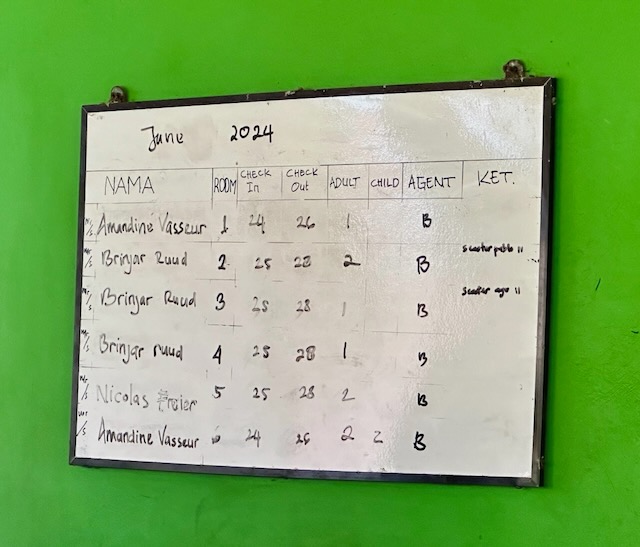 June 2024
NAMA ROOM CHECK In CHECK Out ADULT CHILD AGENT KET.
Amandine Vasseur 1 24 26 1 B
Brinjar Ruud 2 25 28 2 B scooter pablo 11
Brinjar Ruud 3 25 28 1 B scooter ago 11
Brinjar ruud 4 25 28 1 B
Nicolas 5 25 28 2 B
Amandine Vasseur 24 26 2 2 B